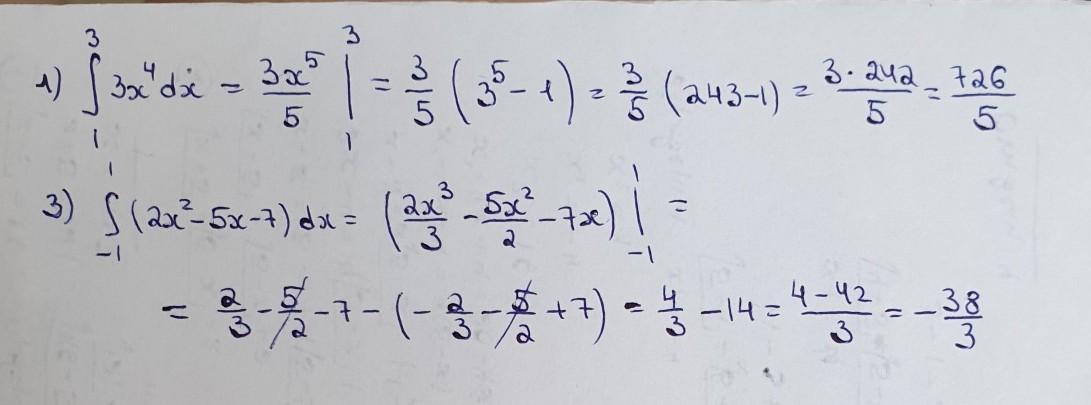 1) ∫₁³ 3x⁴dx = 3x⁵/5 |₁³ = 3/5 (3⁵ - 1) = 3/5 (243-1) = 3·242/5 = 726/5
3) ∫₋₁¹ (2x²-5x-7) dx = (2x³/3 - 5x²/2 - 7x) |₋₁¹ =
= 2/3 - 5/2 - 7 - (-2/3 - 5/2 + 7) = 4/3 - 14 = 4-42/3 = -38/3